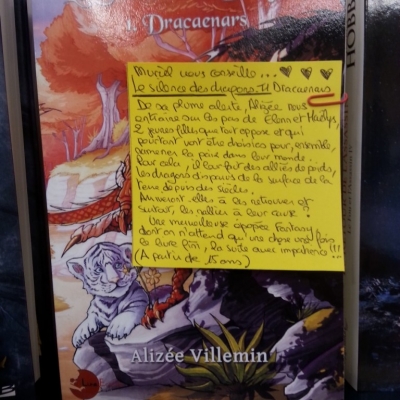 1. Dracaenars
HOBB
Muriel vous conseille...
Le silence des dragons. T1 Dracaenars
De sa plume alerte, Alizée nous
entraîne sur les pas de Elann et
2 jeunes filles que tout oppose et qui
pourtant vont être choisies pour, ensemble,
ramener la paix dans leur monde.
Pour cela, il leur faut des alliés de poids,
les dragons disparus de la surface de la
terre depuis des siècles.
Arriveront elles à les retrouver et
surtout, les rallier à leur cause ?
Une merveilleuse épopée Fantasy
dont on n'attend qu'une chose une fois
le livre fini, la suite avec impatience !!!
(A partir de 15 ans)
Alizée Villemin